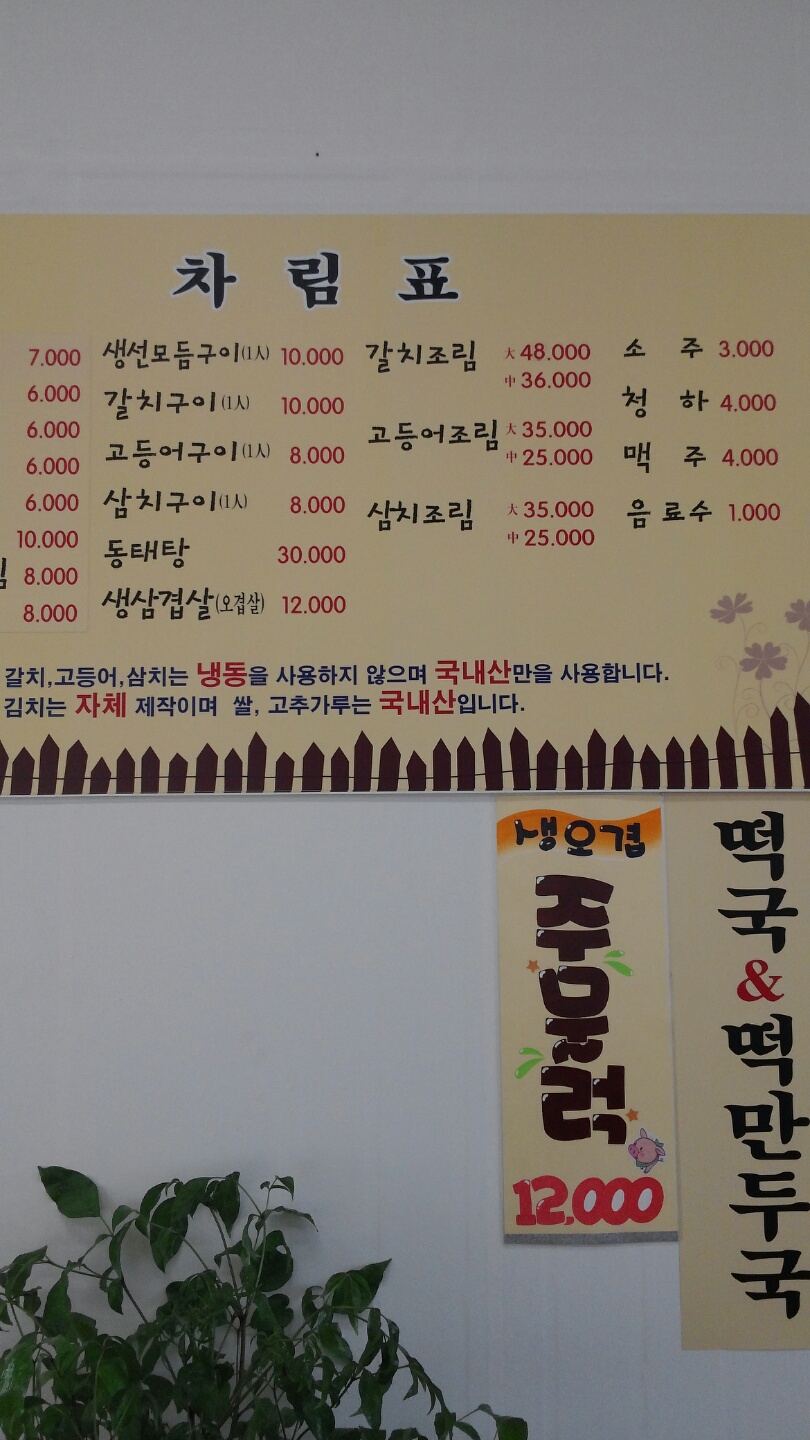 차림표
7.000
6.000
6.000
6.000
6.000
10.000
8.000
8.000
생선모듬구이(1人) 10.000
갈치구이(1人) 10.000
고등어구이(1人) 8.000
삼치구이(1人) 8.000
동태탕 30.000
생삼겹살(오겹살) 12.000
갈치조림 大 48.000
中 36.000
고등어조림 大 35.000
中 25.000
삼치조림 大 35.000
中 25.000
소주 3.000
청하 4.000
맥주 4.000
음료수 1.000
갈치,고등어,삼치는 냉동을 사용하지 않으며 국내산만을 사용합니다.
김치는 자체 제작이며 쌀, 고추가루는 국내산입니다.
생오겹
주물럭
12,000
떡국&떡만두국